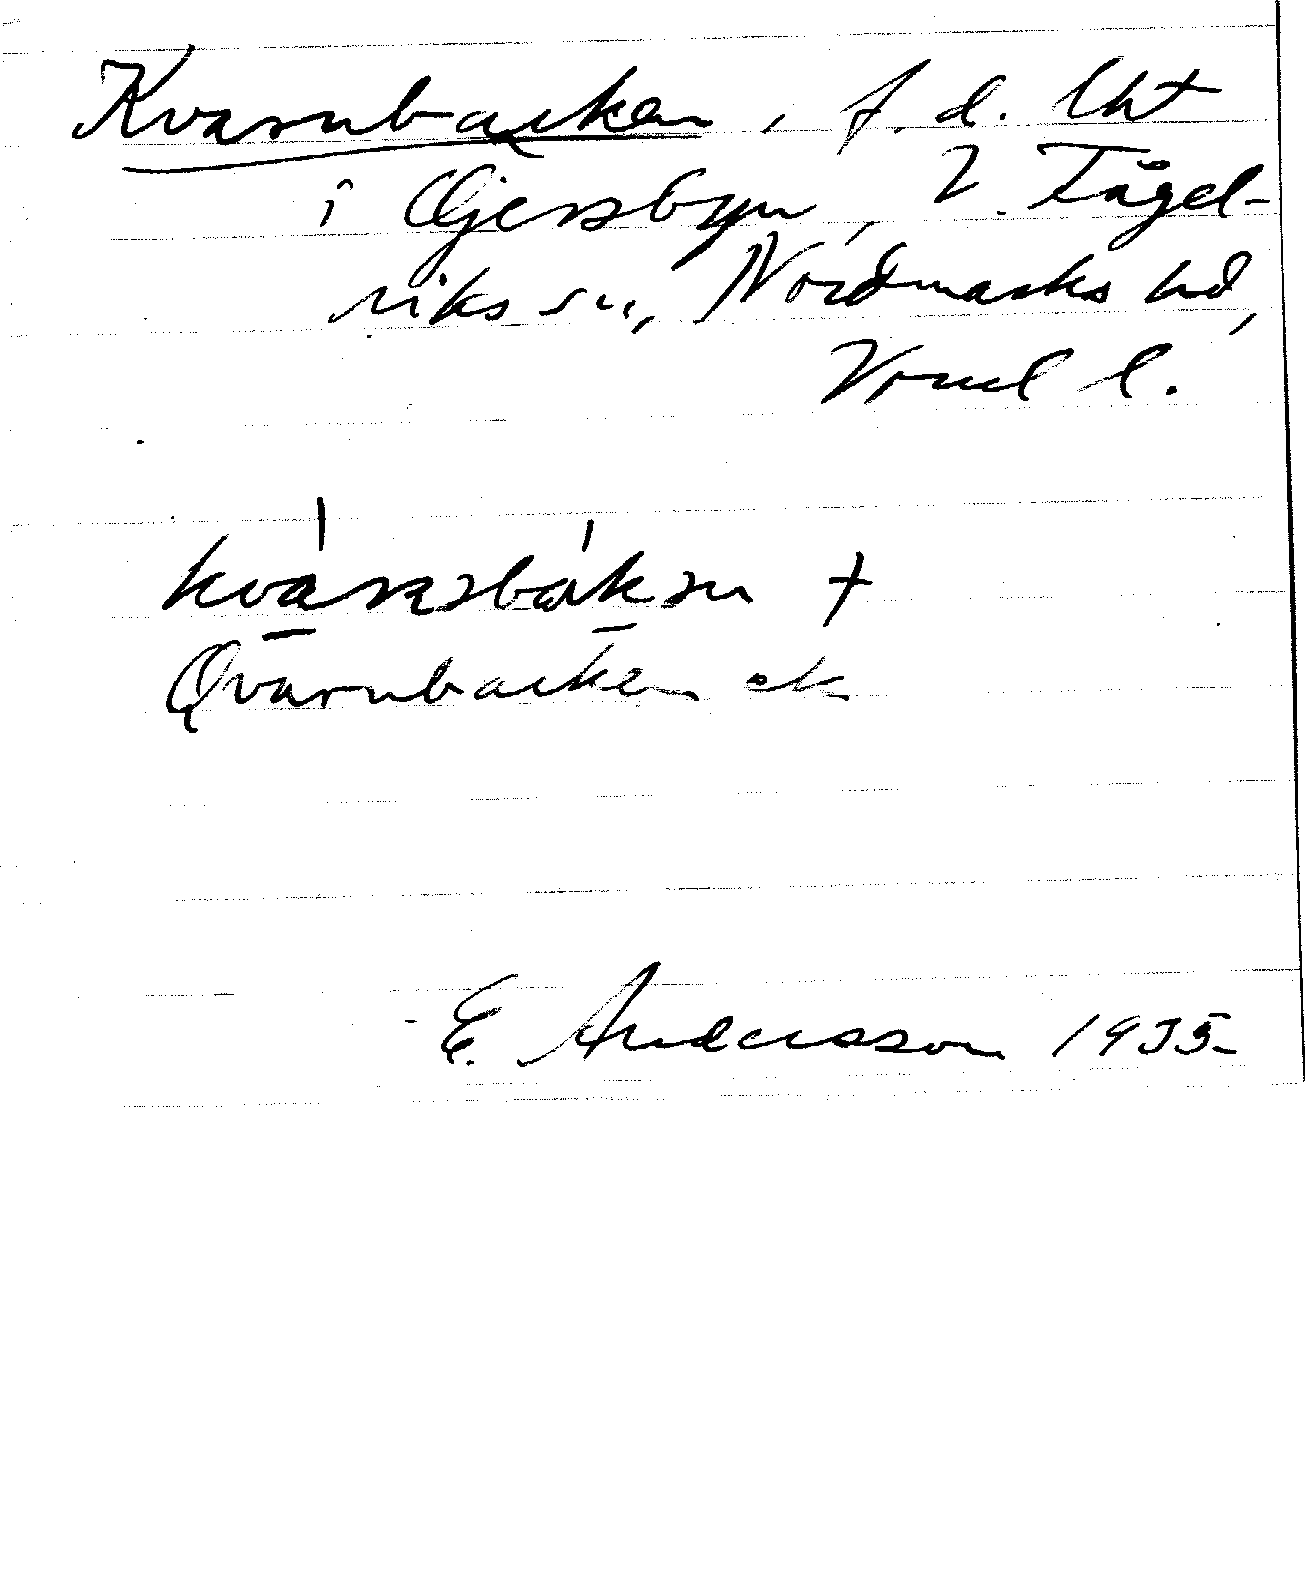 Kvarnbacken, f.d. lht
i Ojersbyn, V. Fågel-
viks sn, Nordmarks hd,
Vrml l.
Qvarnbacken ek
E. Andersson 1935